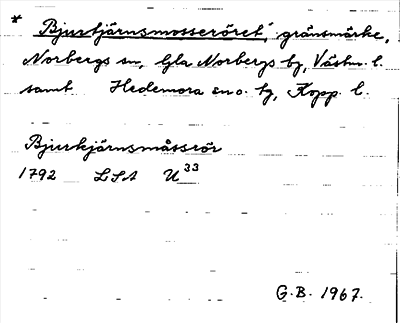 * Bjurtjärnsmosseröret, gränsmärke,
Norbergs sn, Gla Norbergs by, Västm. l.
samt Hedemora sn o. by, Kopp. l.
Bjurkjärnsmåssrör
1792 LSA U 33
G.B. 1967.